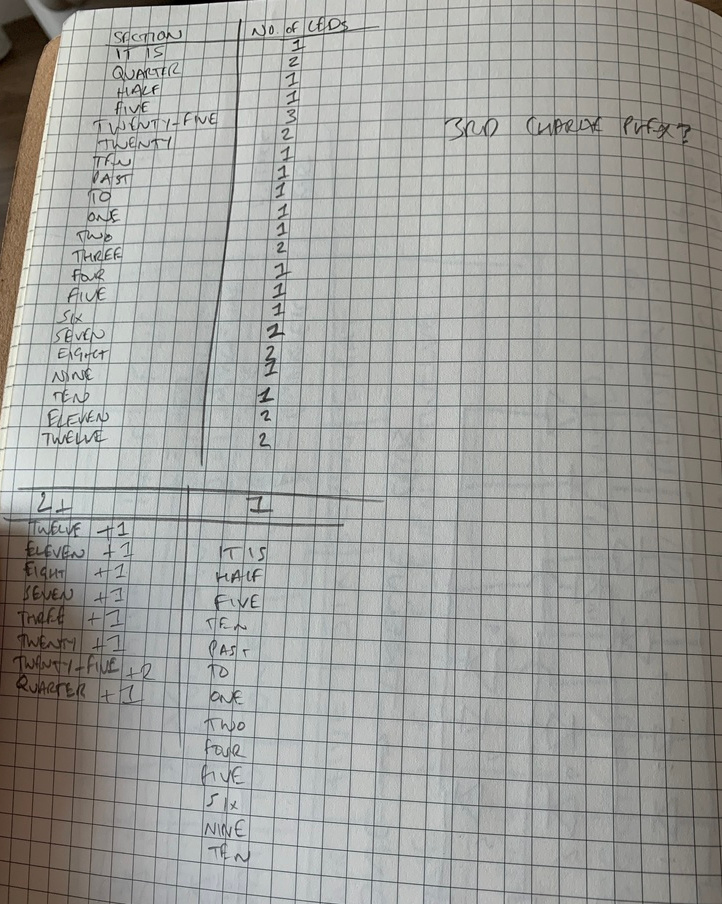 SECTION No. of LEDs
IT IS 1
QUARTER 2
HALF 1
FIVE 1
TWENTY-FIVE 3
TWENTY 2
TEN 1
PAST 1
TO 1
ONE 1
TWO 1
THREE 2
FOUR 1
FIVE 1
SIX 1
SEVEN 2
EIGHT 2
NINE 1
TEN 1
ELEVEN 2
TWELVE 2
3RD CHARGE
2+ 1
TWELVE +1
ELEVEN +1 IT IS
EIGHT +1 HALF
SEVEN +1 FIVE
THREE +1 TEN
TWENTY +1 PAST
TWENTY-FIVE +2 TO
QUARTER +1 ONE
TWO
FOUR
FIVE
SIX
NINE
TEN